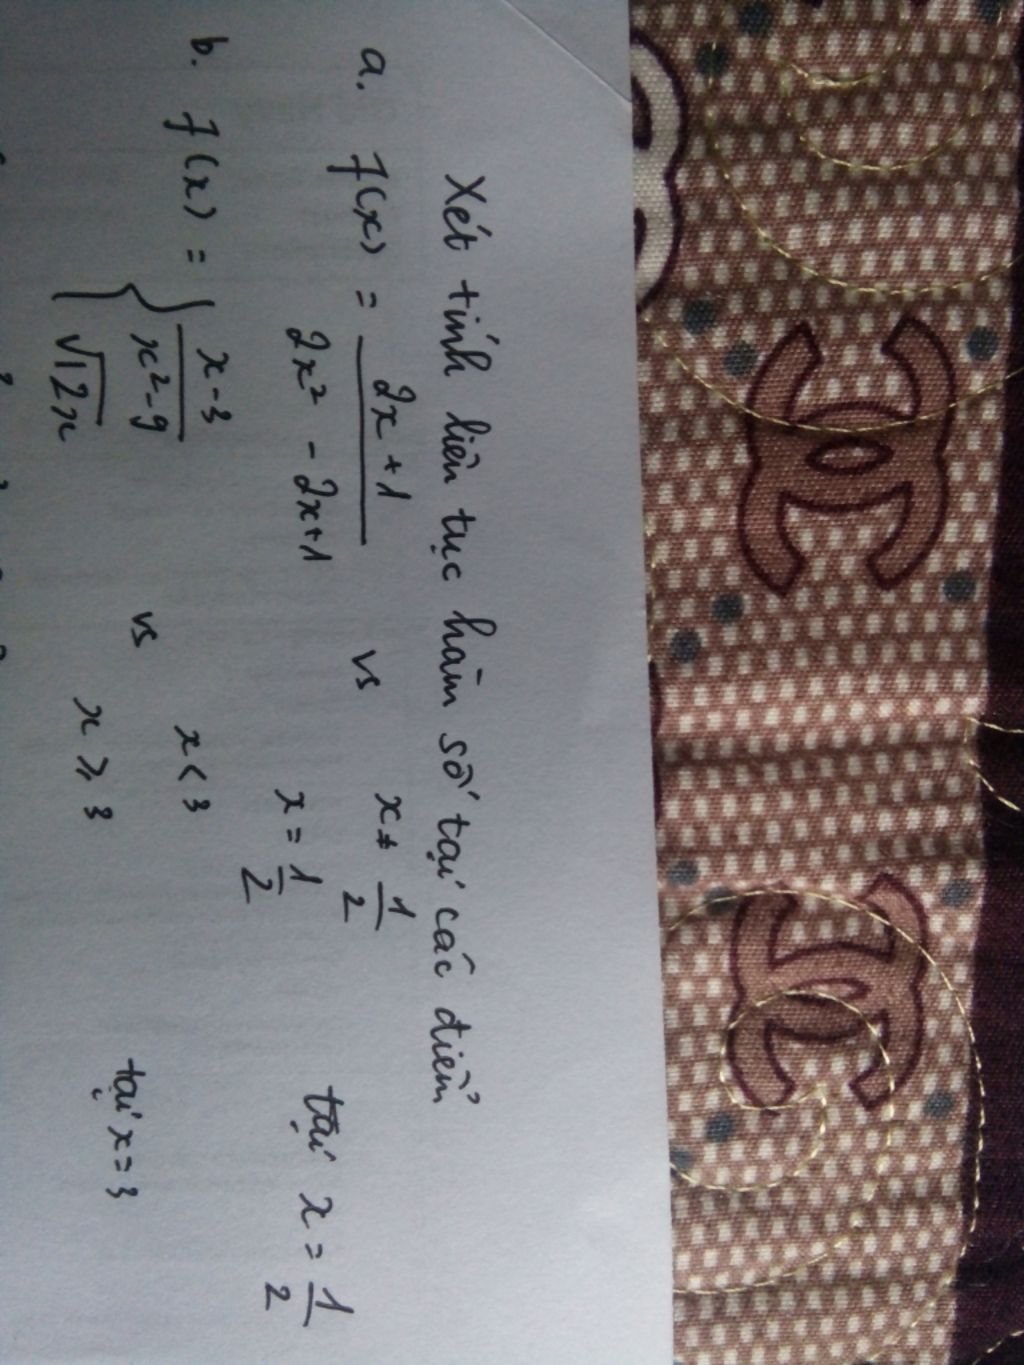 Xét tính liên tục hàm số tại các điểm
a. f(x) = \frac{2x+1}{2x² - 2x+1} vs x ≠ \frac{1}{2}
x = \frac{1}{2} tại x = \frac{1}{2}
b. f(x) = { \frac{x-3}{x²-9} x < 3
√12x vs x ⩾ 3 tại x = 3